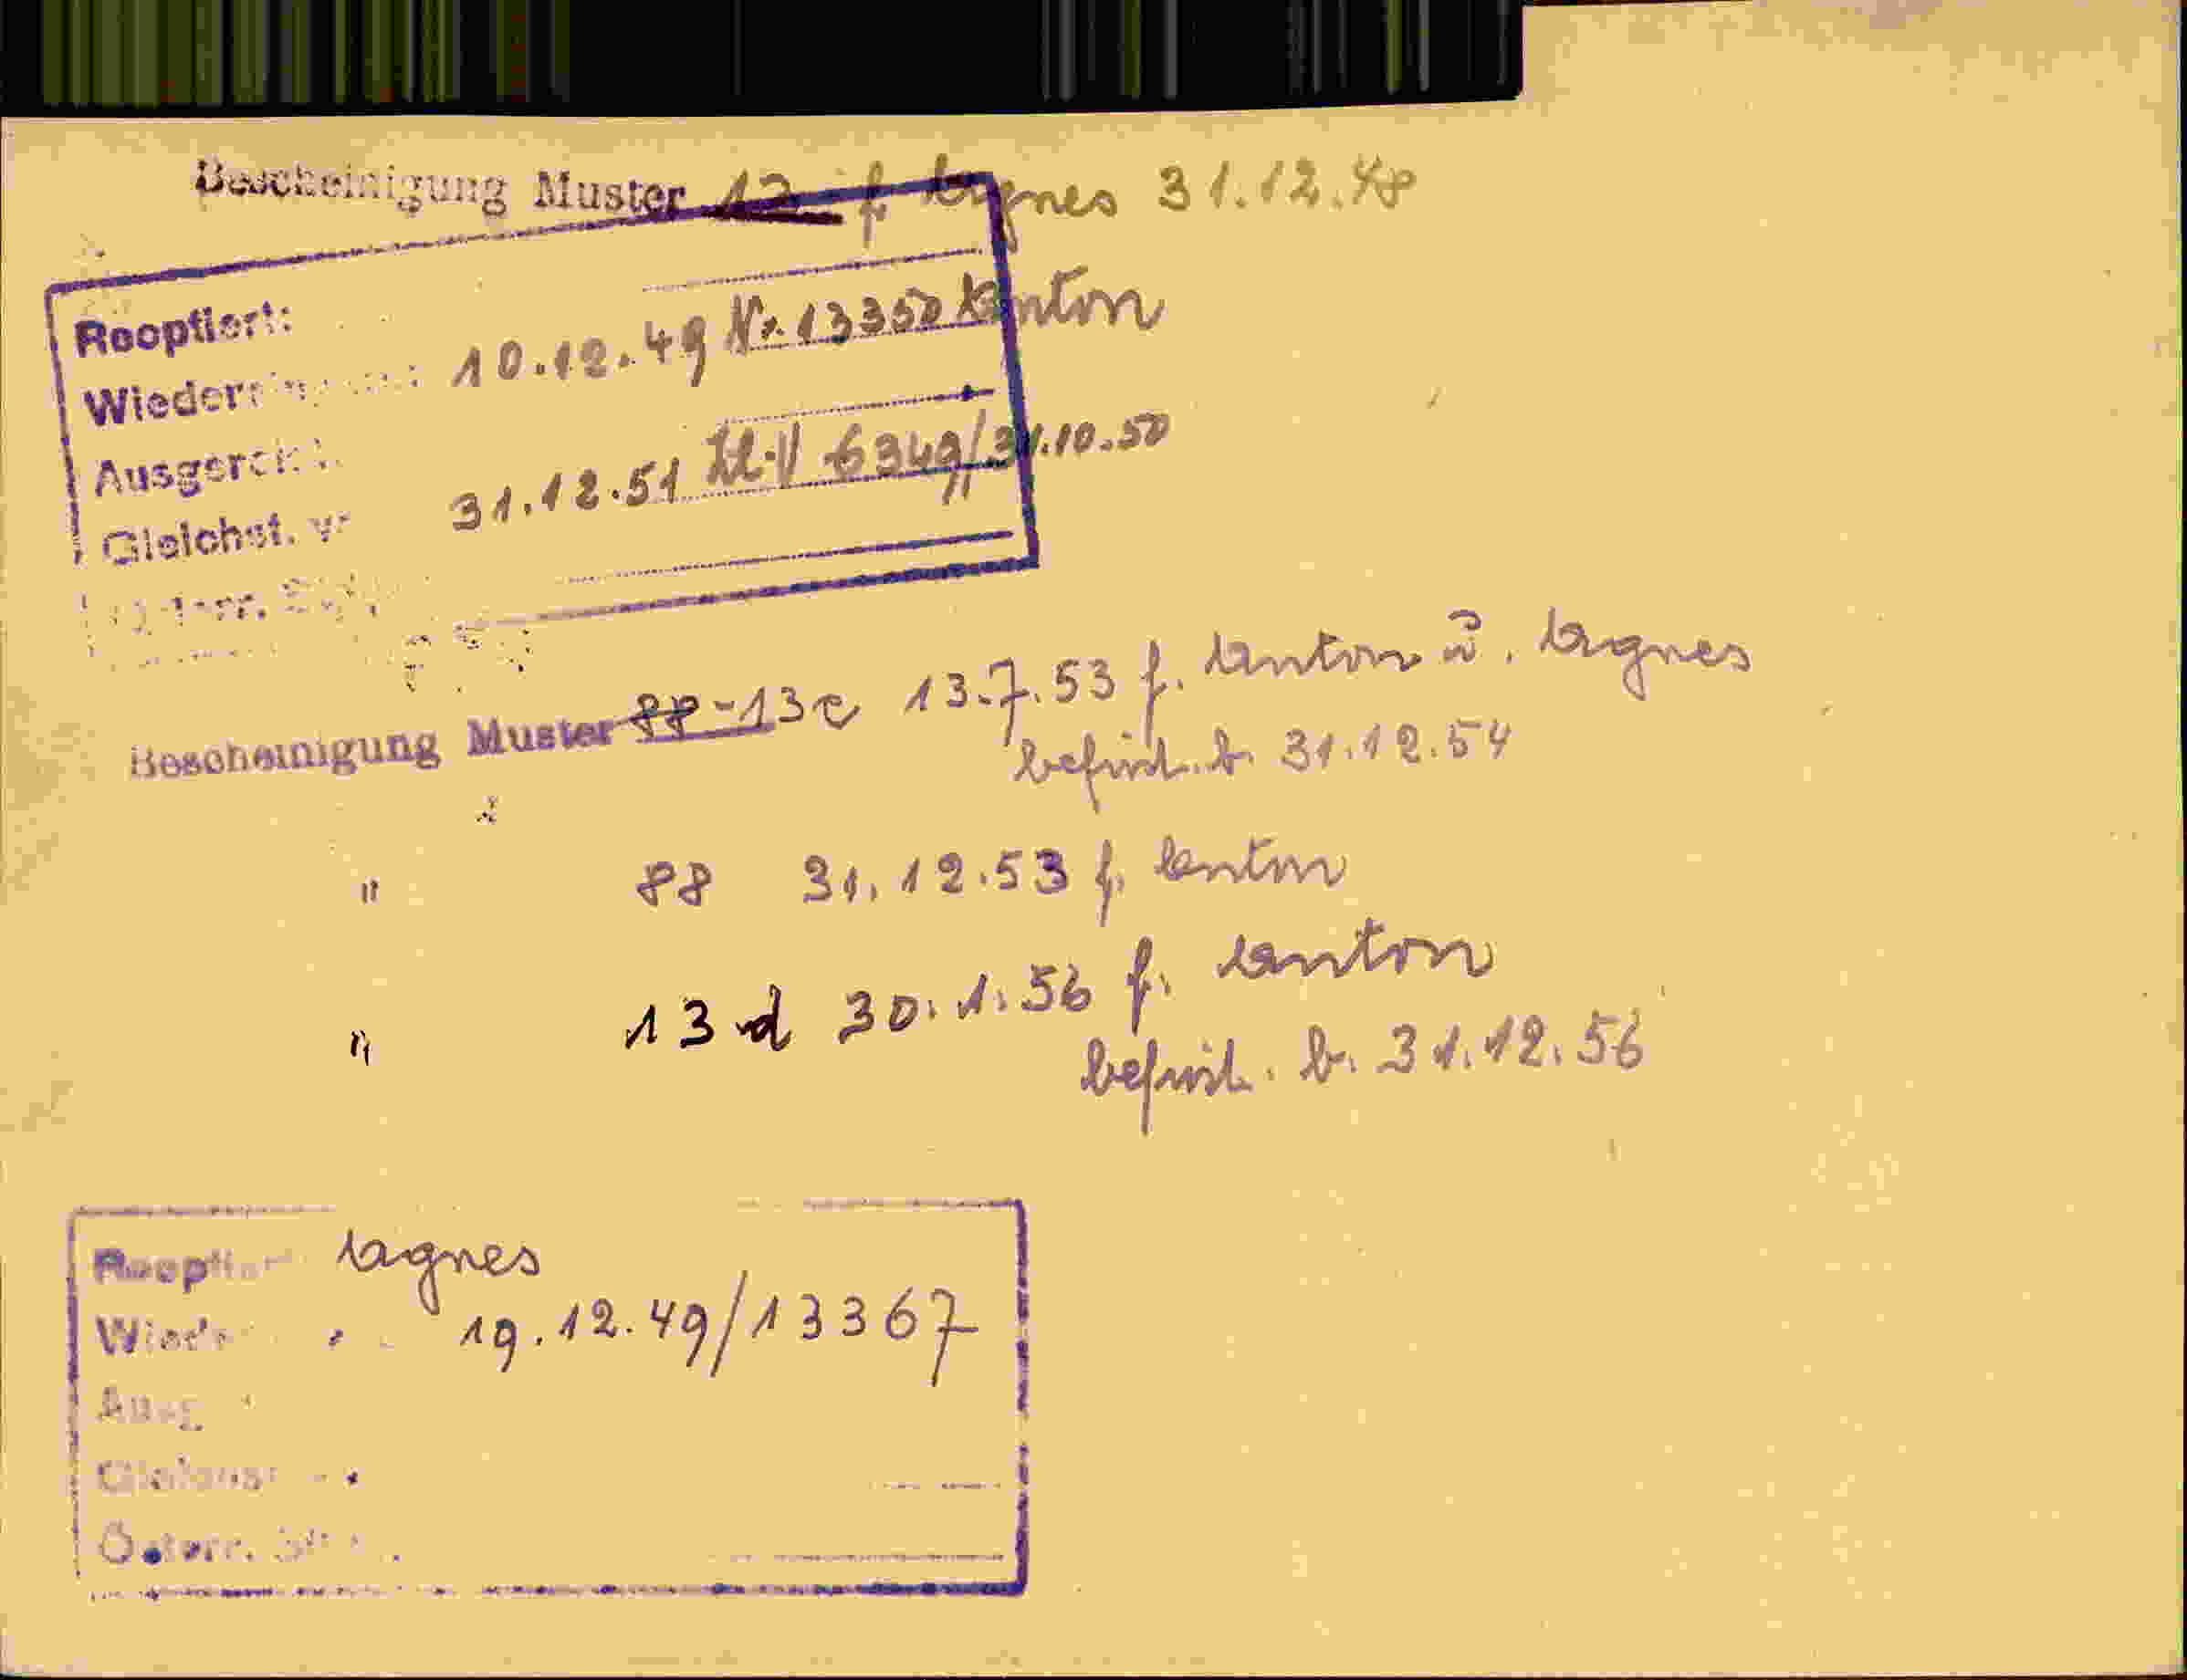 Bescheinigung Muster 13 f. Agnes 31.12.48
Reoptiert:
10.12.49 Nr. 13350 Anton
Ausgereist:
31.12.51 6349/31.10.50
Gleichst.
Bescheinigung Muster 88-13c 13.7.53 f. Anton u. Agnes
befrist. b. 31.12.54
" 88 31.12.53 f. Anton
" 13 d 30.1.56 f. Anton
befrist. b. 31.12.56
Reoptiert Agnes
19.12.49/13367
Österr.